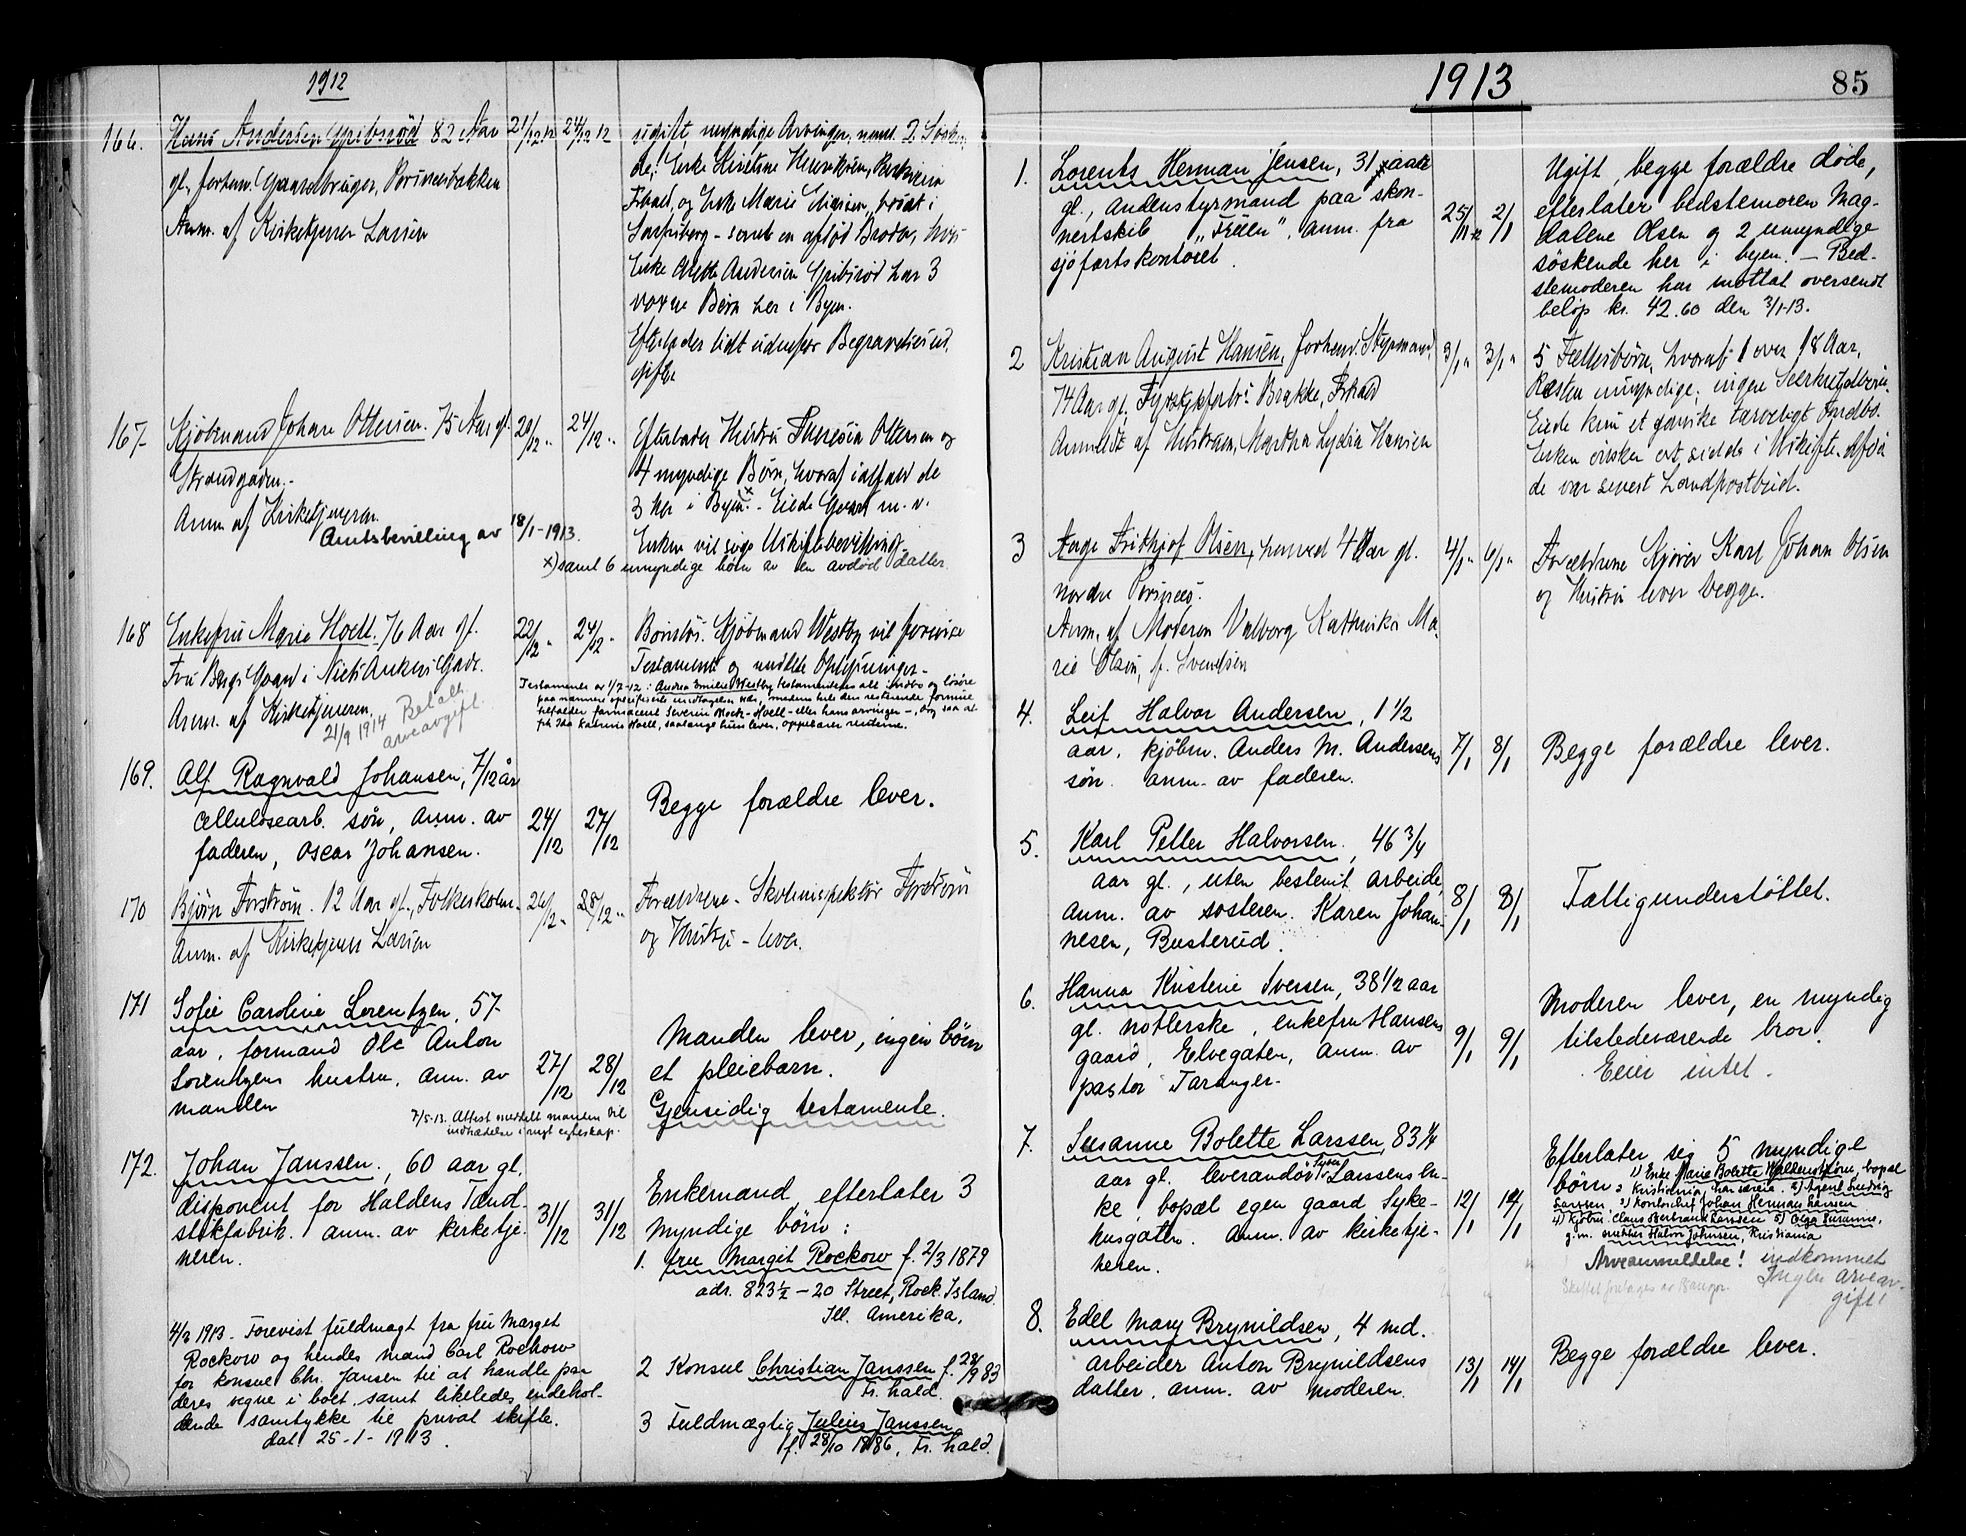 1912
166. Hans Andersen Gribsrød 82 Aar 21/12 12 24/12 12
gl, forhenv. Gaardbruger,
Anm. af Kirketjener Larsen
ugift, myndige Arvinger, nemlig 2 Søsken-
de: Enke Kirstine Henriksen,
F.hald, og Enke Marie Nielsen, bosat i
Sarpsborg - samt en afdød Broder, hvis
Enke Andersen Gribsrød har 3
voxne Børn her i Byen.
Efterlader lidt udenfor Begravelsesud-
gifter
167. Kjøbmand Johan Ottersen. 75 Aar gl. 20/12 " 24/12 "
Strandgaden.-
Anm. af Kirketjeneren
Amtsbevilling av 18/1-1913.
Efterlader Hustru Theresia Ottersen og
4 myndige Børn, hvoraf ialfald de
3 her i Byen. x - Eiede Gaard m. v.
Enken vil søge Uskiftebevilling.
x) samt 6 umyndige børn av en avdød datter.
168 Enkefru Marie Hoell. 76 Aar gl. 22/12 " 24/12 "
Fru Bergs Gaard i Niels Ankers Gade.
Anm. af Kirketjeneren
21/9 1914 Betalt
arveavgift.
Barnløs. Kjøbmand Westby vil forevise
Testamente og meddele Oplysninger.-
Testamente av 1/7-12: Andrea Emilie Westby testamenteres alt indbo og løsøre
paa nærmere specificerte undtagelser nær, medens hele den resterende formue
tilfalder farmaceut Severin Hoell - eller hans arvinger -, dog saa at
frk Ida Katrine Hoell, saalænge hun lever, oppebærer renterne.
169. Alf Ragnvald Johansen, 7/12 år
cellulosearb. søn, anm. av 24/12 27/12
faderen, Oscar Johansen.
Begge forældre lever.
170 Bjørn Forstrøm. 12 Aar gl., Folkeskolen. 26/12 " 28/12 "
Anm. af Kirketjener Larsen
Forældrene - Skoleinspektør Forstrøm
og Hustru - lever.
171 Sofie Caroline Lorentzen, 57
aar, formand Ole Anton
Lorentzens hustru, anm. av 27/12 28/12
manden
7/5-13. Attest meddelt manden til
indtrædelse i nyt egteskap.
Manden lever, ingen børn
et pleiebarn.
Gjensidig testamente.
172. Johan Janssen, 60 aar gl.
disponent for Haldens Tænd-
stikfabrik. anm. av kirketje- 31/12 31/12
neren.
Enkemand, efterlater 3
myndige børn:
1. fru Margit Rockow f. 2/3 1879
adr. 823½ - 20 Street, Rock Island
Ill. Amerika.
2 Konsul Christian Janssen f. 28/9 83
Fr.hald.
3 Fuldmægtig Julius Janssen
f. 28/10 1886, Fr.hald.
4/2 1913. Forevist fuldmagt fra fru Marget
Rockow og hendes mand Carl Rockow
for konsul Chr. Jansen til at handle paa
deres vegne i boet, samt likeledes indehol-
dende samtykke til privat skifte.
dat. 25-1-1913.
1913 85
1. Lorents Herman Jensen, 31 aar
gl., andenstyrmand paa skon-
nertskib "Fidèle", anm. fra 25/11-12 2/1
sjøfartskontoret.
Ugift, begge forældre døde,
efterlater bedstemoren Mag-
dalene Olsen og 2 umyndige
søskende her i byen. - Bed-
stemoderen har mottat oversendt
beløp kr. 42.60 den 3/1-13.
2 Kristian August Hansen, forhenv. Styrmand, 3/1 " 3/1 "
74 Aar gl. Brække, F.hald
Anmeldt af Hustruen, Martha Lydia Hansen
5 Fællesbørn, hvoraf 1 over 18 Aar,
Resten umyndige; ingen Særkuldbørn.
Eiede kun et ganske tarveligt Indbo.
Enken ønsker at sidde i Uskifte. Afdø-
de var senest Landpostbud.
3 Aage Frithjof Olsen, henved 4 Aar gl. 4/1 " 6/1 "
nordre
Anm. af Moderen Valborg Kathrika Ma-
rie Olsen, f. Svendsen
Forældrene Kjører Karl Johan Olsen
og Hustru lever begge.
4. Leif Halvor Andersen, 1 1/2
aar, kjøbm. Anders M. Andersens 7/1 8/1
søn. anm. av faderen.
Begge forældre lever.
5. Karl Petter Halvorsen, 46 3/4
aar gl., uten bestemt arbeide, 8/1 8/1
anm. av søsteren. Karen Johan-
nesen, Busterud.
Fattigunderstøttet.
6. Hanna Kristine Iversen, 38 1/2 aar
gl. notlerske, enkefru Hansens 9/1 9/1
gaard, Elvegaten, anm. av
pastor Taranger.
Moderen lever, en myndig
tilstedeværende bror.
Eier intet.
7. Susanne Bolette Larssen, 83 1/4
aar gl. leverandør Larssens en-
ke, bopæl egen gaard, Syke- 12/1 14/1
husgaten. Anm. av kirketje-
neren.
Efterlater sig 5 myndige
børn: 1) Enke Marie Bolette, bopæl
Kristiania, 2) Agent Ludvig
Larssen, 3) Kontorchef Johan Herman Larssen
4) Kjøbm. Claus Bertrand Larssen 5) Olga Susanne,
g.m. Halvor Johnsen, Kristiania
Arveanmeldelse! indkommet
Ingen arveav-
gift!
8. Edel Mary Brynildsen, 4 md.
arbeider Anton Brynildsens 13/1 14/1
datter. anm. av moderen.
Begge forældre lever.